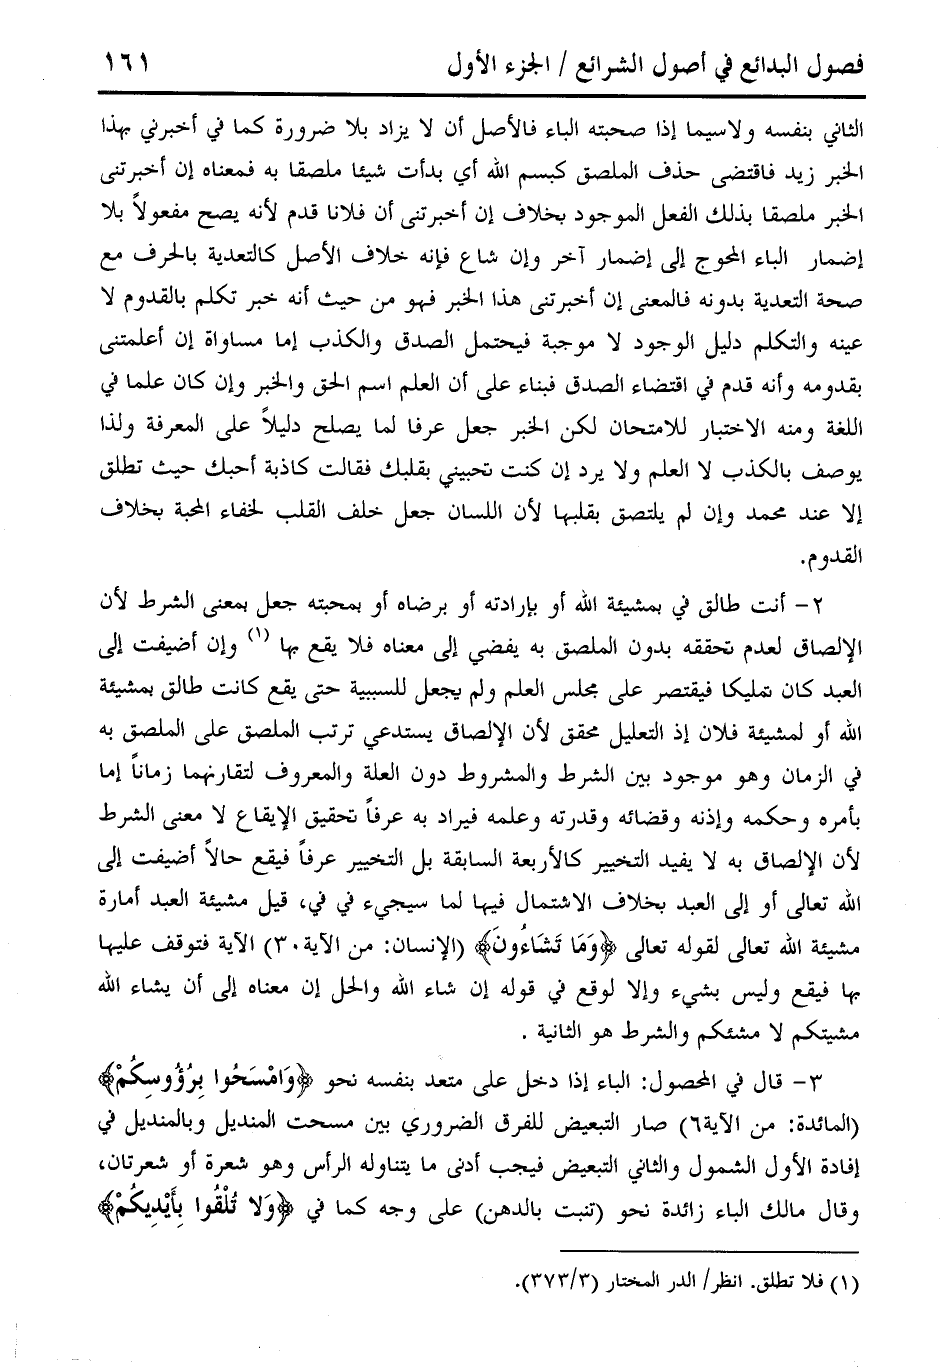 فصول البدائع في أصول الشرائع / الجزء الأول ١٦١
الثاني بنفسه ولاسيما إذا صحبته الباء فالأصل أن لا يزاد بلا ضرورة كما في أخبرني بهذا
الخبر زيد فاقتضى حذف الملصق كبسم الله أي بدأت شيئا ملصقا به فمعناه إن أخبرتنى
الخبر ملصقا بذلك الفعل الموجود بخلاف إن أخبرتنى أن فلانا قدم لأنه يصح مفعولاً بلا
إضمار الباء المحوج إلى إضمار آخر وإن شاع فإنه خلاف الأصل كالتعدية بالحرف مع
صحة التعدية بدونه فالمعنى إن أخبرتنى هذا الخبر فهو من حيث أنه خبر تكلم بالقدوم لا
عينه والتكلم دليل الوجود لا موجبة فيحتمل الصدق والكذب إما مساواة إن أعلمتنى
بقدومه وأنه قدم في اقتضاء الصدق فبناء على أن العلم اسم الحق والخبر وإن كان علما في
اللغة ومنه الاختبار للامتحان لكن الخبر جعل عرفا لما يصلح دليلاً على المعرفة ولذا
يوصف بالكذب لا العلم ولا يرد إن كنت تحبيني بقلبك فقالت كاذبة أحبك حيث تطلق
إلا عند محمد وإن لم يلتصق بقلبها لأن اللسان جعل خلف القلب لخفاء المحبة بخلاف
القدوم.
٢- أنت طالق في بمشيئة الله أو بإرادته أو برضاه أو بمحبته جعل بمعنى الشرط لأن
الإلصاق لعدم تحققه بدون الملصق به يفضي إلى معناه فلا يقع بها (١) وإن أضيفت إلى
العبد كان تمليكا فيقتصر على مجلس العلم ولم يجعل للسببية حتى يقع كانت طالق بمشيئة
الله أو لمشيئة فلان إذ التعليل محقق لأن الإلصاق يستدعي ترتب الملصق على الملصق به
في الزمان وهو موجود بين الشرط والمشروط دون العلة والمعروف لتقارنهما زماناً إما
بأمره وحكمه وإذنه وقضائه وقدرته وعلمه فيراد به عرفاً تحقيق الإيقاع لا معنى الشرط
لأن الإلصاق به لا يفيد التخيير كالأربعة السابقة بل التخيير عرفاً فيقع حالاً أضيفت إلى
الله تعالى أو إلى العبد بخلاف الاشتمال فيها لما سيجيء في في، قيل مشيئة العبد أمارة
مشيئة الله تعالى لقوله تعالى ﴿وَمَا تَشَاءُونَ﴾ (الإنسان: من الآية٣٠) الآية فتوقف عليها
بها فيقع وليس بشيء وإلا لوقع في قوله إن شاء الله والحل إن معناه إلى أن يشاء الله
مشيتكم لا مشئكم والشرط هو الثانية .
٣- قال في المحصول: الباء إذا دخل على متعد بنفسه نحو ﴿وَامْسَحُوا بِرُؤُوسِكُمْ﴾
(المائدة: من الآية٦) صار التبعيض للفرق الضروري بين مسحت المنديل وبالمنديل في
إفادة الأول الشمول والثاني التبعيض فيجب أدنى ما يتناوله الرأس وهو شعرة أو شعرتان،
وقال مالك الباء زائدة نحو (تنبت بالدهن) على وجه كما في ﴿وَلا تُلْقُوا بِأَيْدِيكُمْ﴾
(١) فلا تطلق. انظر/ الدر المختار (٣٧٣/٣).